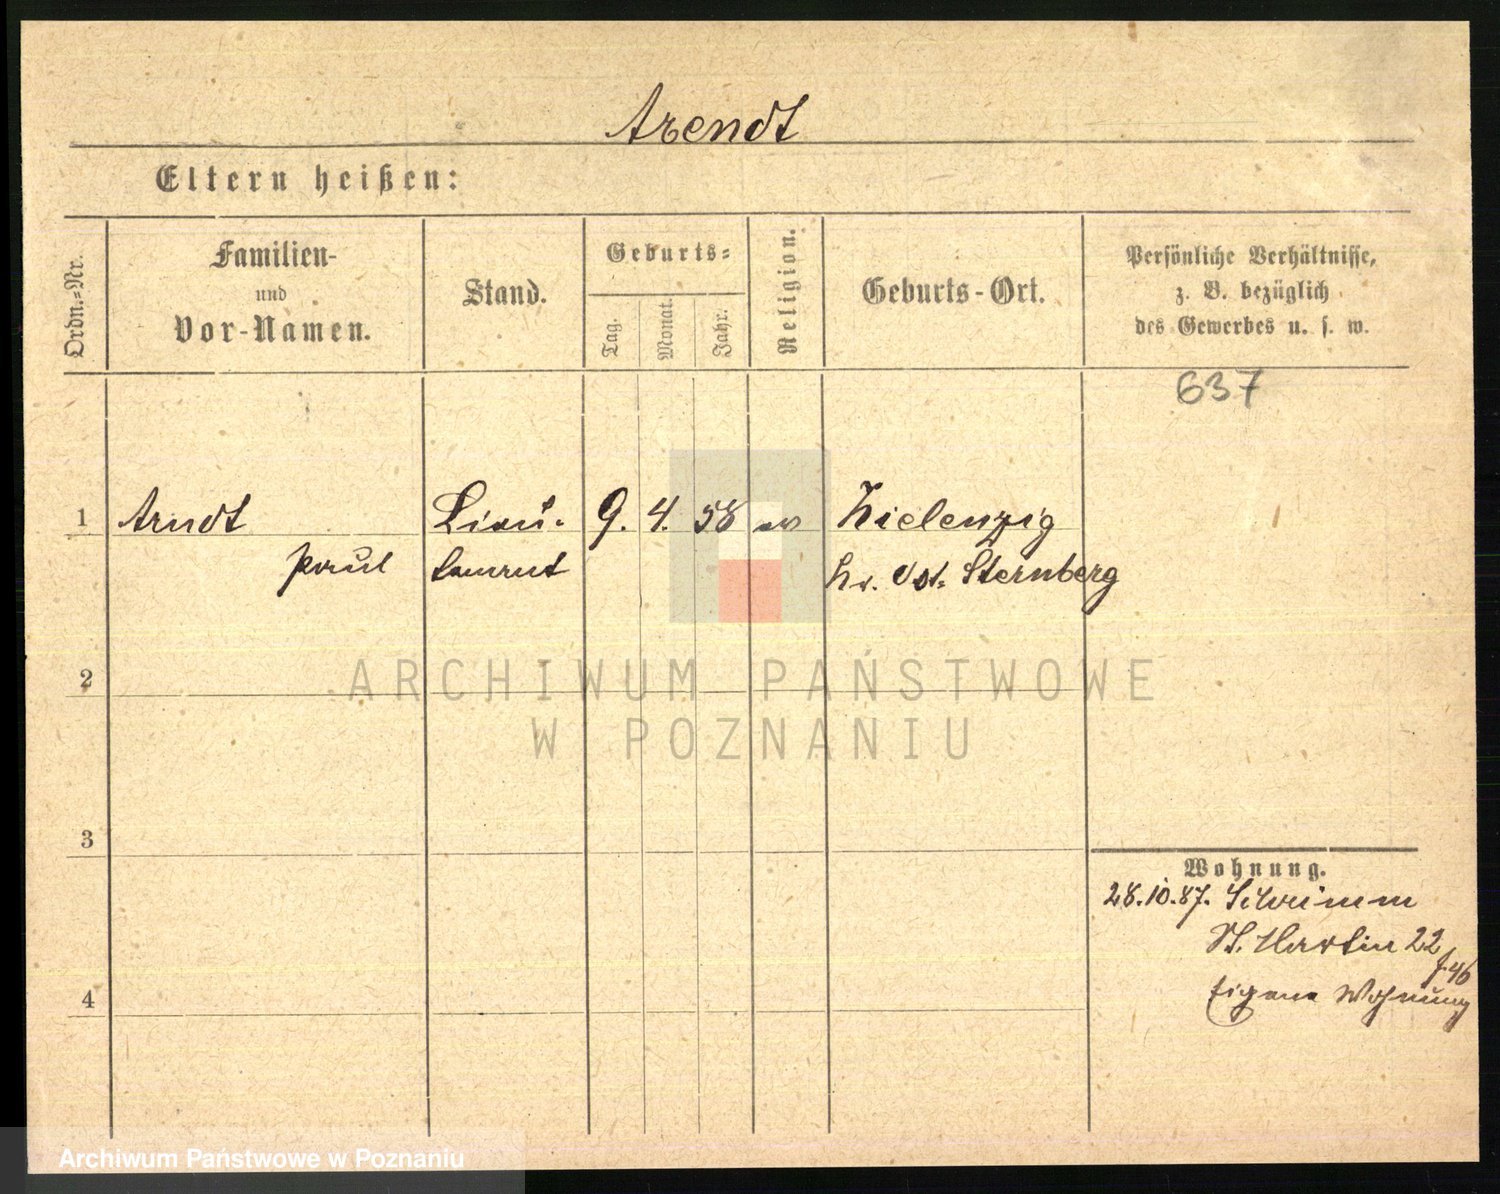 Arendt
Eltern heißen:
Ordn.-Nr.
Familien-
und
Vor-Namen.
Stand.
Geburts-
Tag.
Monat.
Jahr.
Religion.
Geburts-Ort.
Persönliche Verhältnisse,
z. B. bezüglich
des Gewerbes u. s. w.
637
1 Arndt Lieu- 9. 4. 58 ev Zielenzig
Paul tenant Kr. Ost-Sternberg
2
3
4
Wohnung.
28.10.87. Schrimm
St. Martin 22
f. 46
Eigene Wohnung
ARCHIWUM PAŃSTWOWE
W POZNANIU
Archiwum Państwowe w Poznaniu